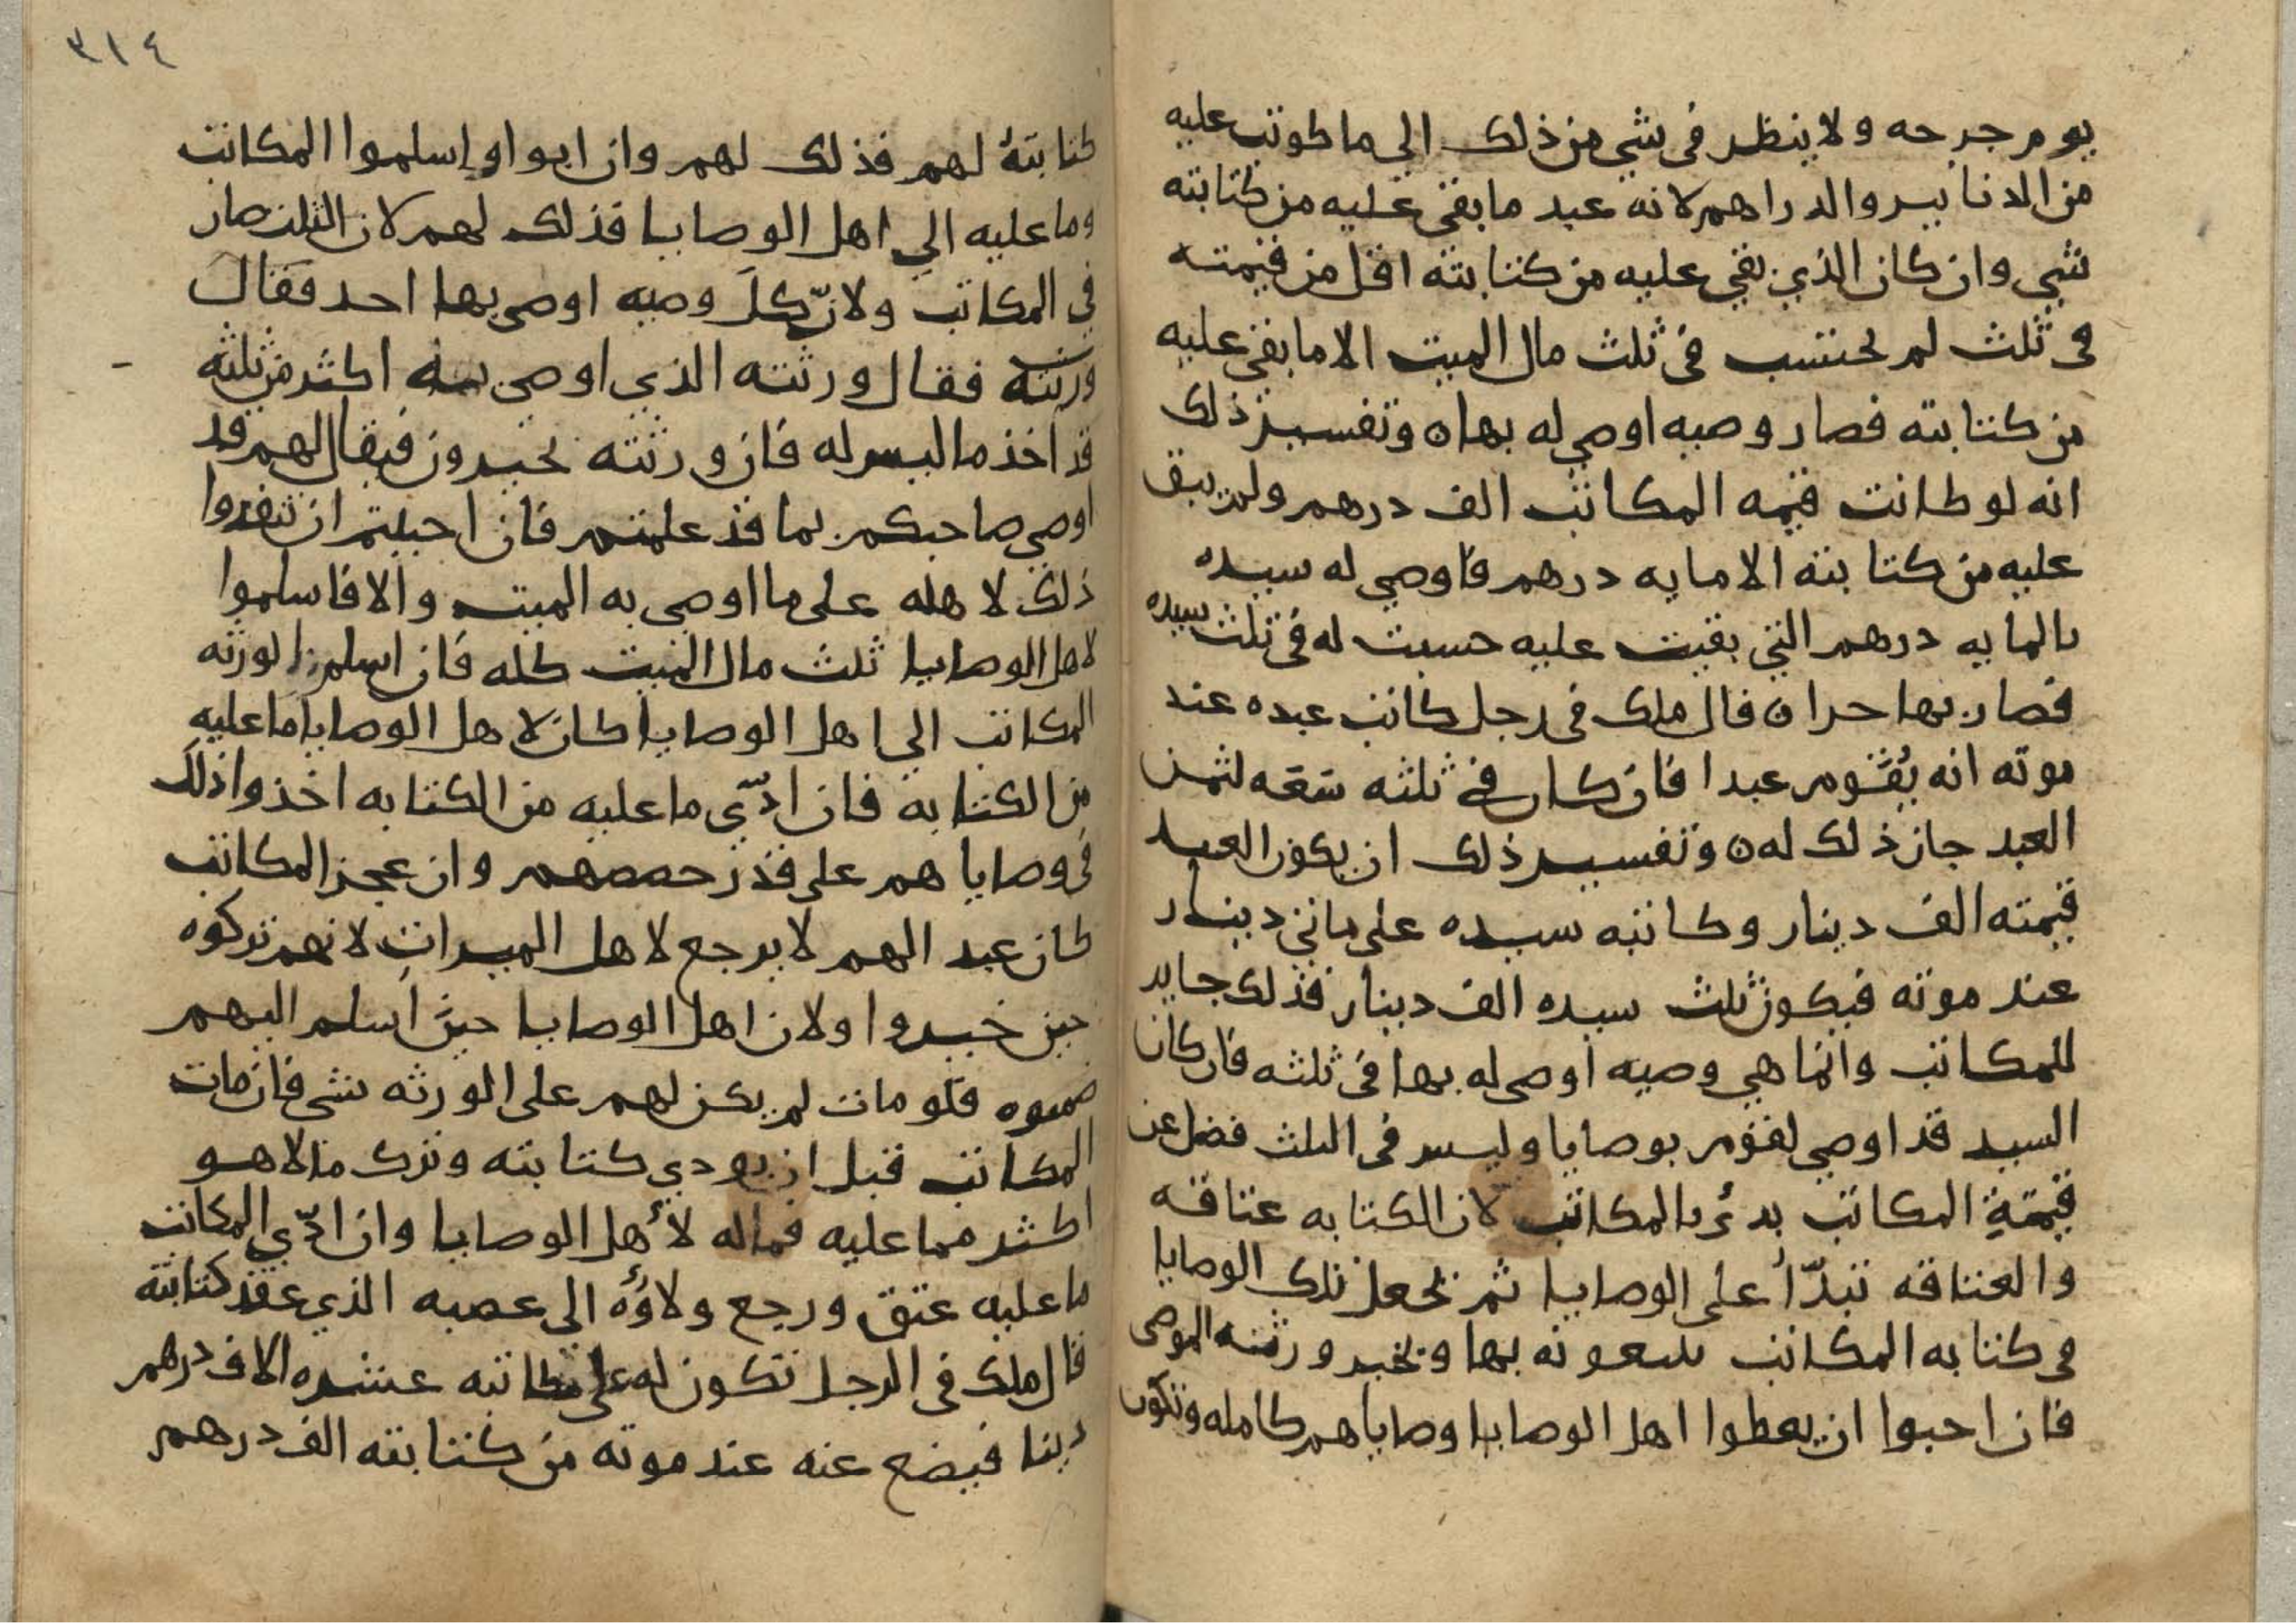 يوم جرحه ولا ينظر في شي من ذلك الي ما كوتب عليه
من الدنانير والدراهم لانه عبد ما بقي عليه من كتابته
شي وان كان الذي بقي عليه من كتابته اقل من قيمته
في ثلث لم يحتسب في ثلث مال الميت الا ما بقي عليه
من كتابته فصار وصيه اوصي له بها ٥ وتفسير ذلك
انه لو كانت قيمه المكاتب الف درهم ولم يبق
عليه من كتابته الا مايه درهم فاوصي له سيده
بالمايه درهم التي بقيت عليه حسبت له في ثلث سيده
فصار بها حرا ٥ قال ملك في رجل كاتب عبده عند
موته انه يُقَوم عبدا فان كان في ثلثه سَعَه لثمن
العبد جاز ذلك له ٥ وتفسير ذلك ان يكون العبد
قيمته الف دينار وكاتبه سيده علي مايتي دينار
عند موته فيكون ثلث سيده الف دينار فذلك جايز
للمكاتب وانما هي وصيه اوصي له بها في ثلثه فان كان
السيد قد اوصي لقوم بوصايا وليس في الثلث فضل عن
قيمةِ المكاتب بدئ بالمكاتب لان الكتابه عتاقه
والعتاقه تبدّأ علي الوصايا ثم تجعل تلك الوصايا
في كتابه المكاتب يتبعونه بها ويخير ورثته الموصي
فان احبوا ان يعطوا اهل الوصايا وصاياهم كامله وتكون
٣١٤
كتابتهُ لهم فذلك لهم وان ابوا واسلموا المكاتب
وما عليه الي اهل الوصايا فذلك لهم لان الثلث صار
في المكاتب ولانّ كلَ وصيه اوصي بها احد فقالَ
ورثته فقال ورثته الذي اوصي به اكثر من ثلثه
قد اخذ ما ليس له فان ورثته يخيرون فيقال لهم قد
اوصي صاحبكم بما قد علمتم فان احببتم ان تنفذوا
ذلك لاهله علي ما اوصي به الميت والا فاسلموا
لاهل الوصايا ثلث مال الميت كله فان اسلم الورثه
المكاتب الي اهل الوصايا كان لاهل الوصايا ما عليه
من الكتابه فان ادّي ما عليه من الكتابه اخذوا ذلك
في وصاياهم علي قدر حصصهم وان عجز المكاتب
كان عبدا لهم لا يرجع لاهل الميراث لانهم تركوه
حين خيروا ولان اهل الوصايا حين اسلم اليهم
ضمنوه فلو مات لم يكن لهم علي الورثه شي فان مات
المكاتب قبل ان يودي كتابته وترك مالا هو
اكثر مما عليه فماله لأهل الوصايا وان ادّي المكاتب
ما عليه عتق ورجع ولاؤُه الي عصبه الذي عقد كتابته
قال ملك في الرجل تكون له علي مكاتبه عشره الاف درهم
دينا فيضع عنه عند موته من كتابته الف درهم